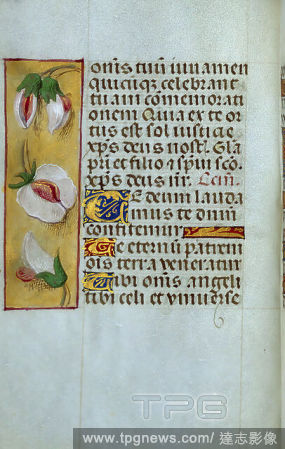 om̄s tuū iuuamen
quicūqꝫ celebrant
tuam cōmemorati
onem Quia ex te or
tus est sol iusticie
xp̄s deus nost̄ Gla
pr̄i et filio
xp̄s deus
Te deum lauda
mus te dnm̄
confitemur
Te eternū patrem
om̄s terra veneratur
Tibi om̄s angeli
tibi celi et vniuerse
TPG
www.tpgnews.com/ 達志影像